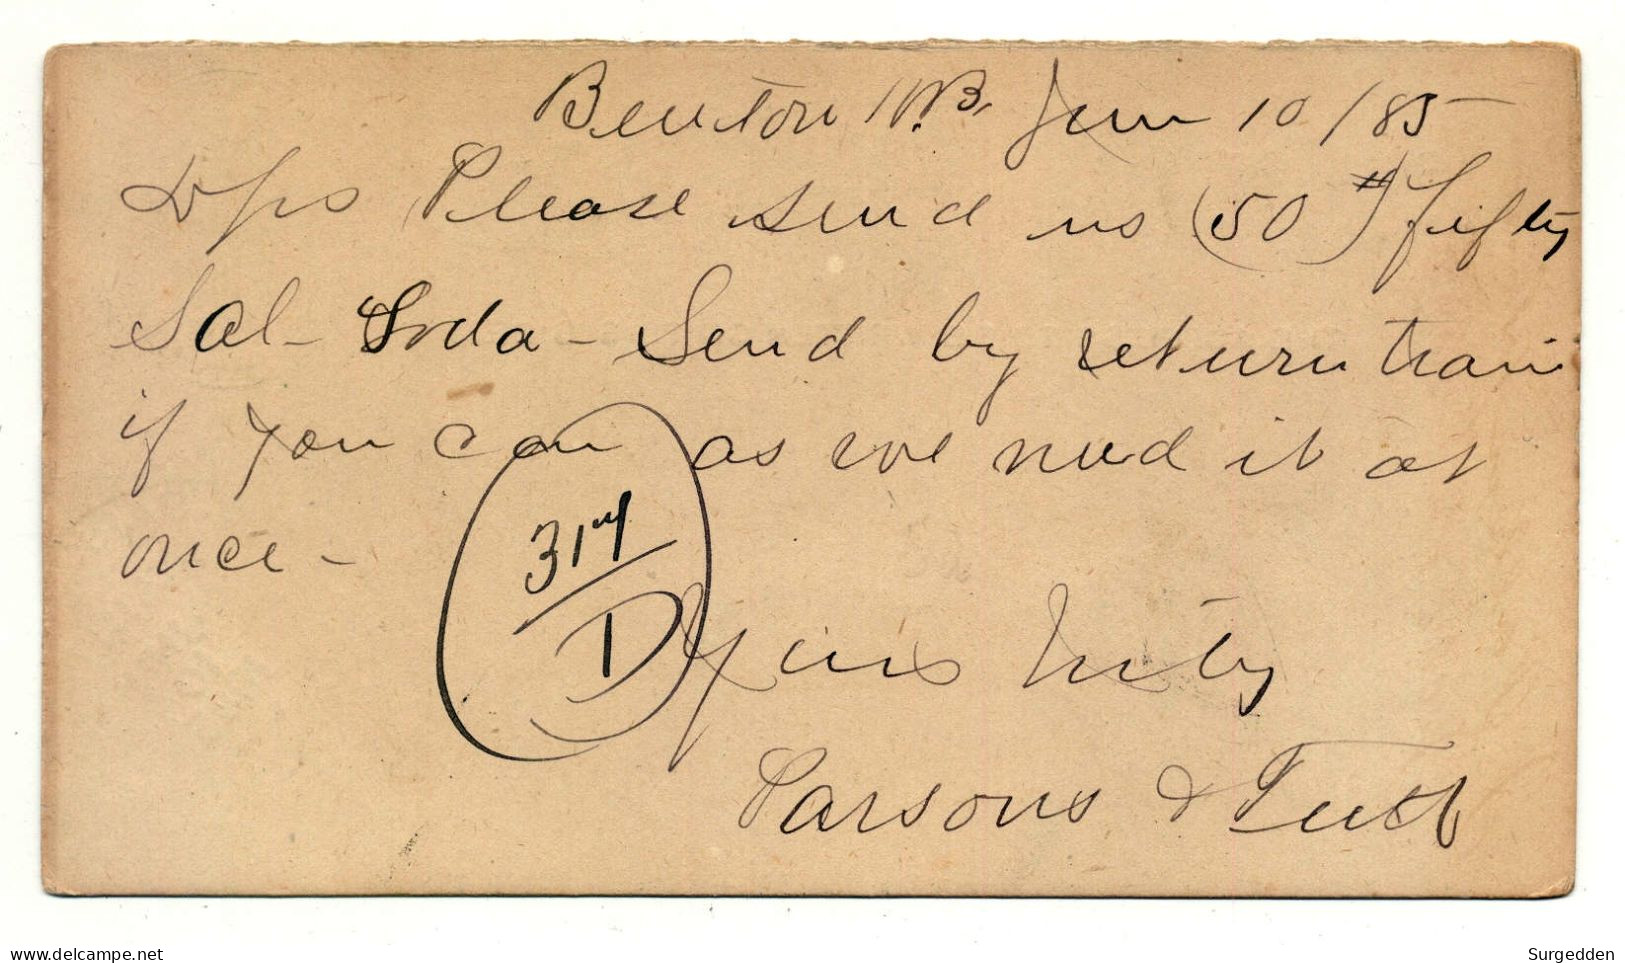 Benton N.B. June 10/85
Drs Please send us (50#) fifty
Sal-Soda - Send by return train
if you can as we need it at
once -
31
D
Yours truly
Parsons & Tutt
Surgedden